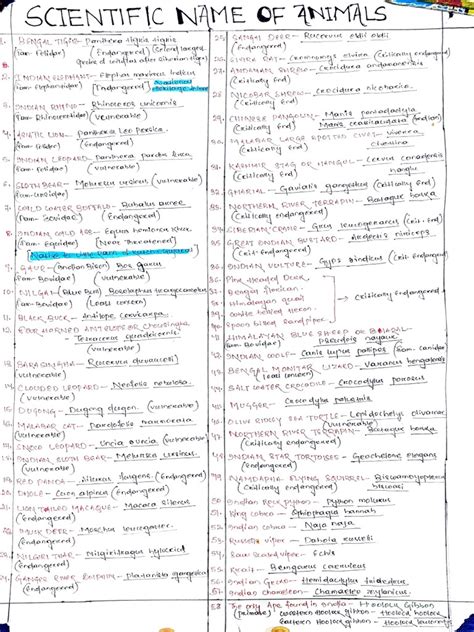 SCIENTIFIC NAME OF ANIMALS
1. BENGAL TIGER - Panthera tigris tigris
(Fam- Felidae) (Endangered)
2. INDIAN ELEPHANT - Elephas maximus indicus
[Endangered]
3. INDIAN RHINO - Rhinoceros unicornis
(Fam- Rhinocerotidae) (Vulnerable)
4. ASIATIC LION - Panthera Leo Persica
5. INDIAN LEOPARD - Panthera pardus fusca
(Fam- Felidae) (Vulnerable)
6. SLOTH BEAR - Melursus ursinus (Vulnerable)
7. WILD WATER BUFFALO - Bubalus arnee
(Fam- Bovidae) (Endangered)
8. INDIAN WILD ASS - Equus hemionus khur
[Near Threatened]
9. GAUR - (Indian Bison) Bos gaurus
(Fam- Bovidae) (Vulnerable)
10. NILGAI - (Blue Bull) Boselaphus tragocamelus
(Fam- Bovidae) (Least concern)
11. BLACK BUCK - Antilope cervicapra
12. FOUR HORNED ANTELOPE OR Chousingha
- Tetracerus quadricornis
(Vulnerable)
13. BARASINGHA - Rucervus duvaucelii
(Vulnerable)
14. CLOUDED LEOPARD - Neofelis nebulosa
(Vulnerable)
15. DUGONG - Dugong dugon
(Vulnerable)
16. MALABAR CAT -
17. SNOW LEOPARD - Uncia uncia (Vulnerable)
18. INDIAN SLOTH BEAR - Melursus Ursinus
(Vulnerable)
19. RED PANDA - Ailurus fulgens (Endangered)
20. DHOLE - Cuon alpinus (Endangered)
21. LION TAILED MACAQUE - Macaca Silenus
(Endangered)
22. MUSK DEER - Moschus leucogaster
(Endangered)
23. NILGIRI TAHR - Nilgiritragus hylocrius
(Endangered)
24. GANGES RIVER DOLPHIN - Platanista gangetica
(Endangered)
25. SANGAI DEER - Rucervus eldii eldii
(Endangered)
26.
(Critically Endangered)
27. ANDAMAN SHREW - Crocidura andamanensis
(Critically End)
28. NICOBAR SHREW - Crocidura
(Critically Endangered)
29. CHINESE PENGOLIN - Manis pentadactyla
(Critically Endangered)
30. MALABAR LARGE SPOTTED CIVET - Viverra
civettina
31. KASHMIR STAG OR HANGUL - Cervus canadensis
hanglu
(Critically End)
32. GHARIAL - Gavialis gangeticus (Critically End)
33. NORTHERN RIVER TERRAPIN - Batagur baska
(Critically End)
34. SIBERIAN CRANE - Grus leucogeranus
(Critically End)
35. GREAT INDIAN BUSTARD - Ardeotis nigriceps
36. INDIAN VULTURE - Gyps indicus (Critically End)
Pink Headed Duck
Bengal florican
Himalayan quail
white bellied heron
Spoon billed sandpiper
(Critically Endangered)
42. HIMALAYAN BLUE SHEEP OR BHARAL
- Pseudois nayaur
43. INDIAN WOLF - Canis lupus pallipes (Fam. Canidae)
BENGAL MONITOR LIZARD - Varanus bengalensis
SALT WATER CROCODILE - Crocodylus porosus
MUGGER - Crocodylus palustris
OLIVE RIDLEY SEA TORTLE - Lepidochelys olivacea
(Vulnerable)
NORTHERN RIVER TERRAPIN - Batagur baska
(Critically endangered)
48. INDIAN STAR TORTOISES - Geochelone elegans
(Endangered)
49. NAMDAPHA FLYING SQUIRREL - Biswamoyopterus
biswasi
(Critically Endangered)
50 Indian Rock Python - Python molurus
51. King cobra - Ophiophagus hannah
52. Indian cobra - Naja naja
53. Russell's viper - Daboia russelii
54. Saw Scaled viper - Echis
55. Krait - Bungarus caeruleus
56. Indian Gecko - Hemidactylus
57. Indian Chameleon - Chamaeleo zeylanicus
58 The only Ape found in India - Hoolock Gibbon
Western Hoolock Gibbon - Hoolock hoolock
eastern Hoolock gibbon - Hoolock